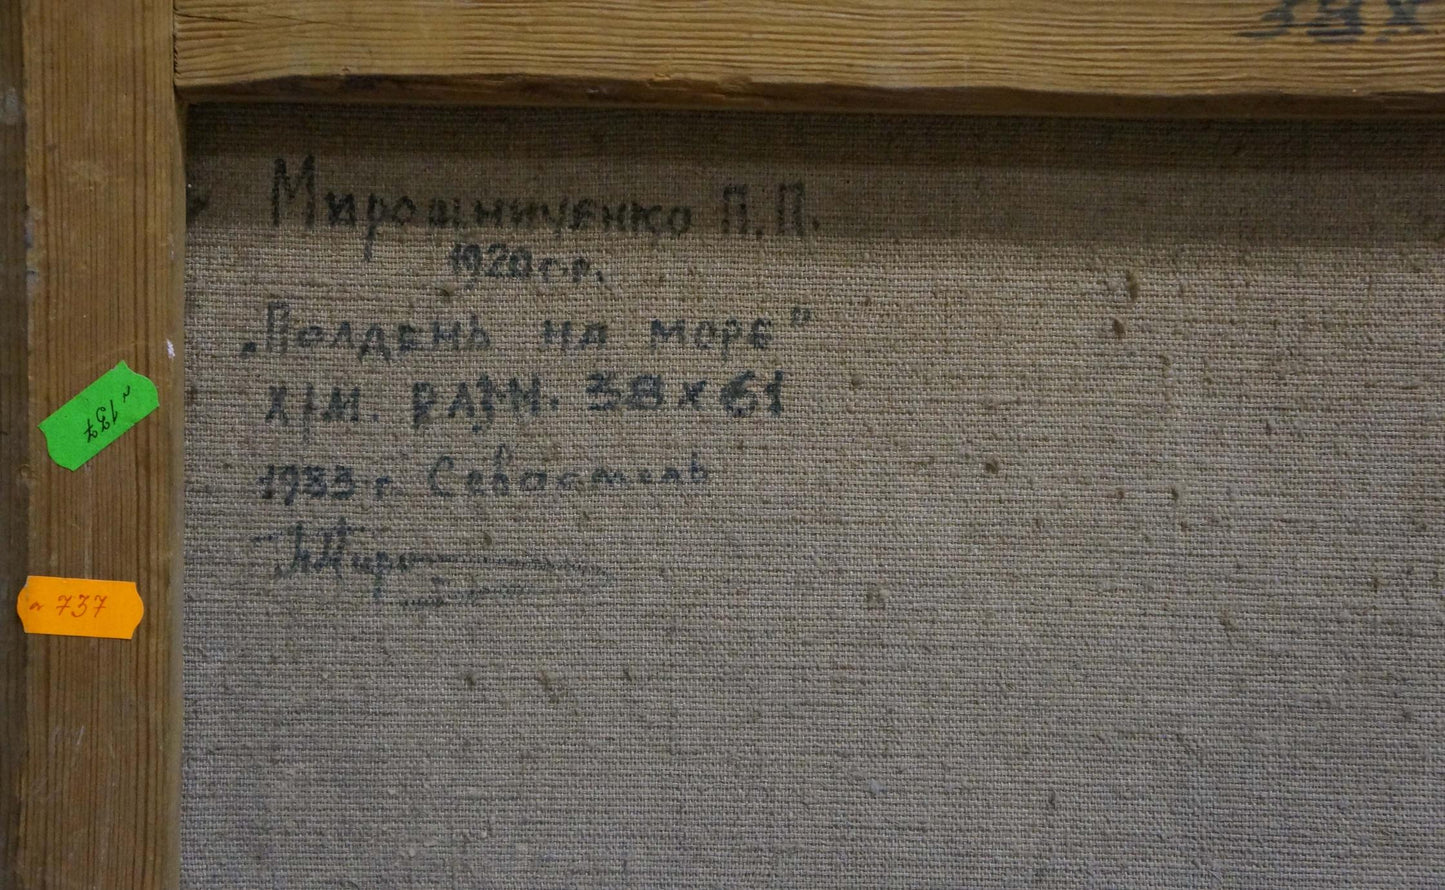 38х
Мирошниченко П.П.
1920 г.р.
„Полдень на море"
х/м. разм. 38 х 61
1983 г. Севастополь
ПМиро
~ 137
~ 737